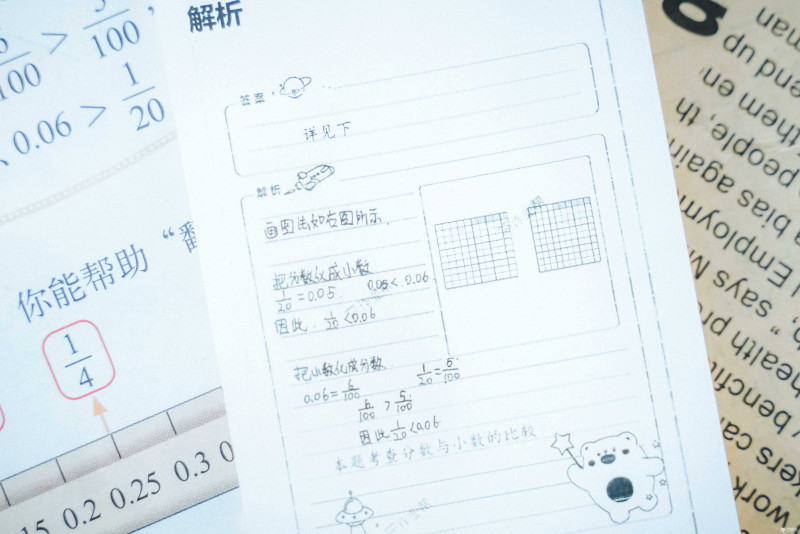 6/100 > 5/100,
0.06 > 1/20
你能帮助“翻
1/4
15 0.2 0.25 0.3 0
解析
答案
详见下
解析
画图法如右图所示.
把分数化成小数
1/20=0.05. 0.05<0.06.
因此 1/20<0.06
把小数化成分数
0.06=6/100 1/20=5/100
6/100 > 5/100
因此 1/20<0.06
本题考查分数与小数的比较
man
end up
them en
people, th
a bias again
l Employm
," says M
health pro
y benefic
kers can
work